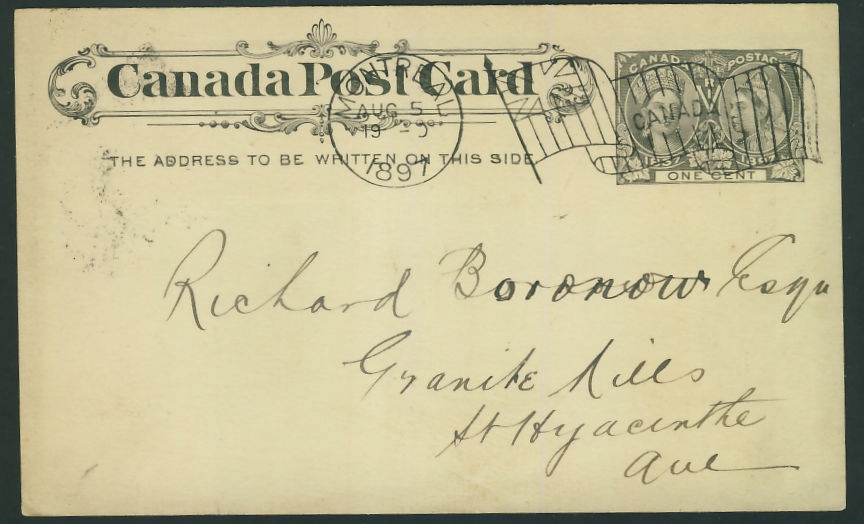 Canada Post Card
MONTREAL
AUG 5
19-0
1897
CANADA POSTAGE
CANADA
1837 1897
ONE CENT
THE ADDRESS TO BE WRITTEN ON THIS SIDE
Richard Boronow Esqu
Granite Mills
St Hyacinthe
Que